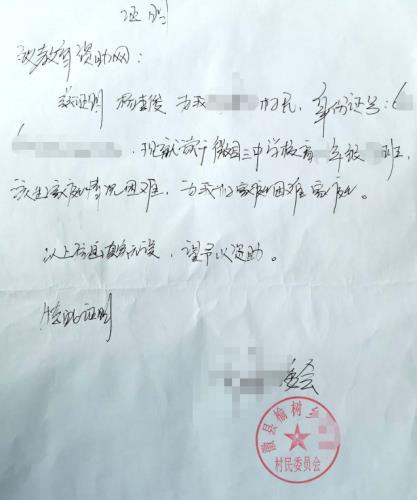 证明
教育资助网：
兹证明 为我 村民，身份证号：6
，现就读于徽县三中学校 年级 班，
该生家庭情况困难，为我们家庭困难家庭。
以上信息真实无误，望予以资助。
特此证明
委会
徽县榆树乡
村民委员会